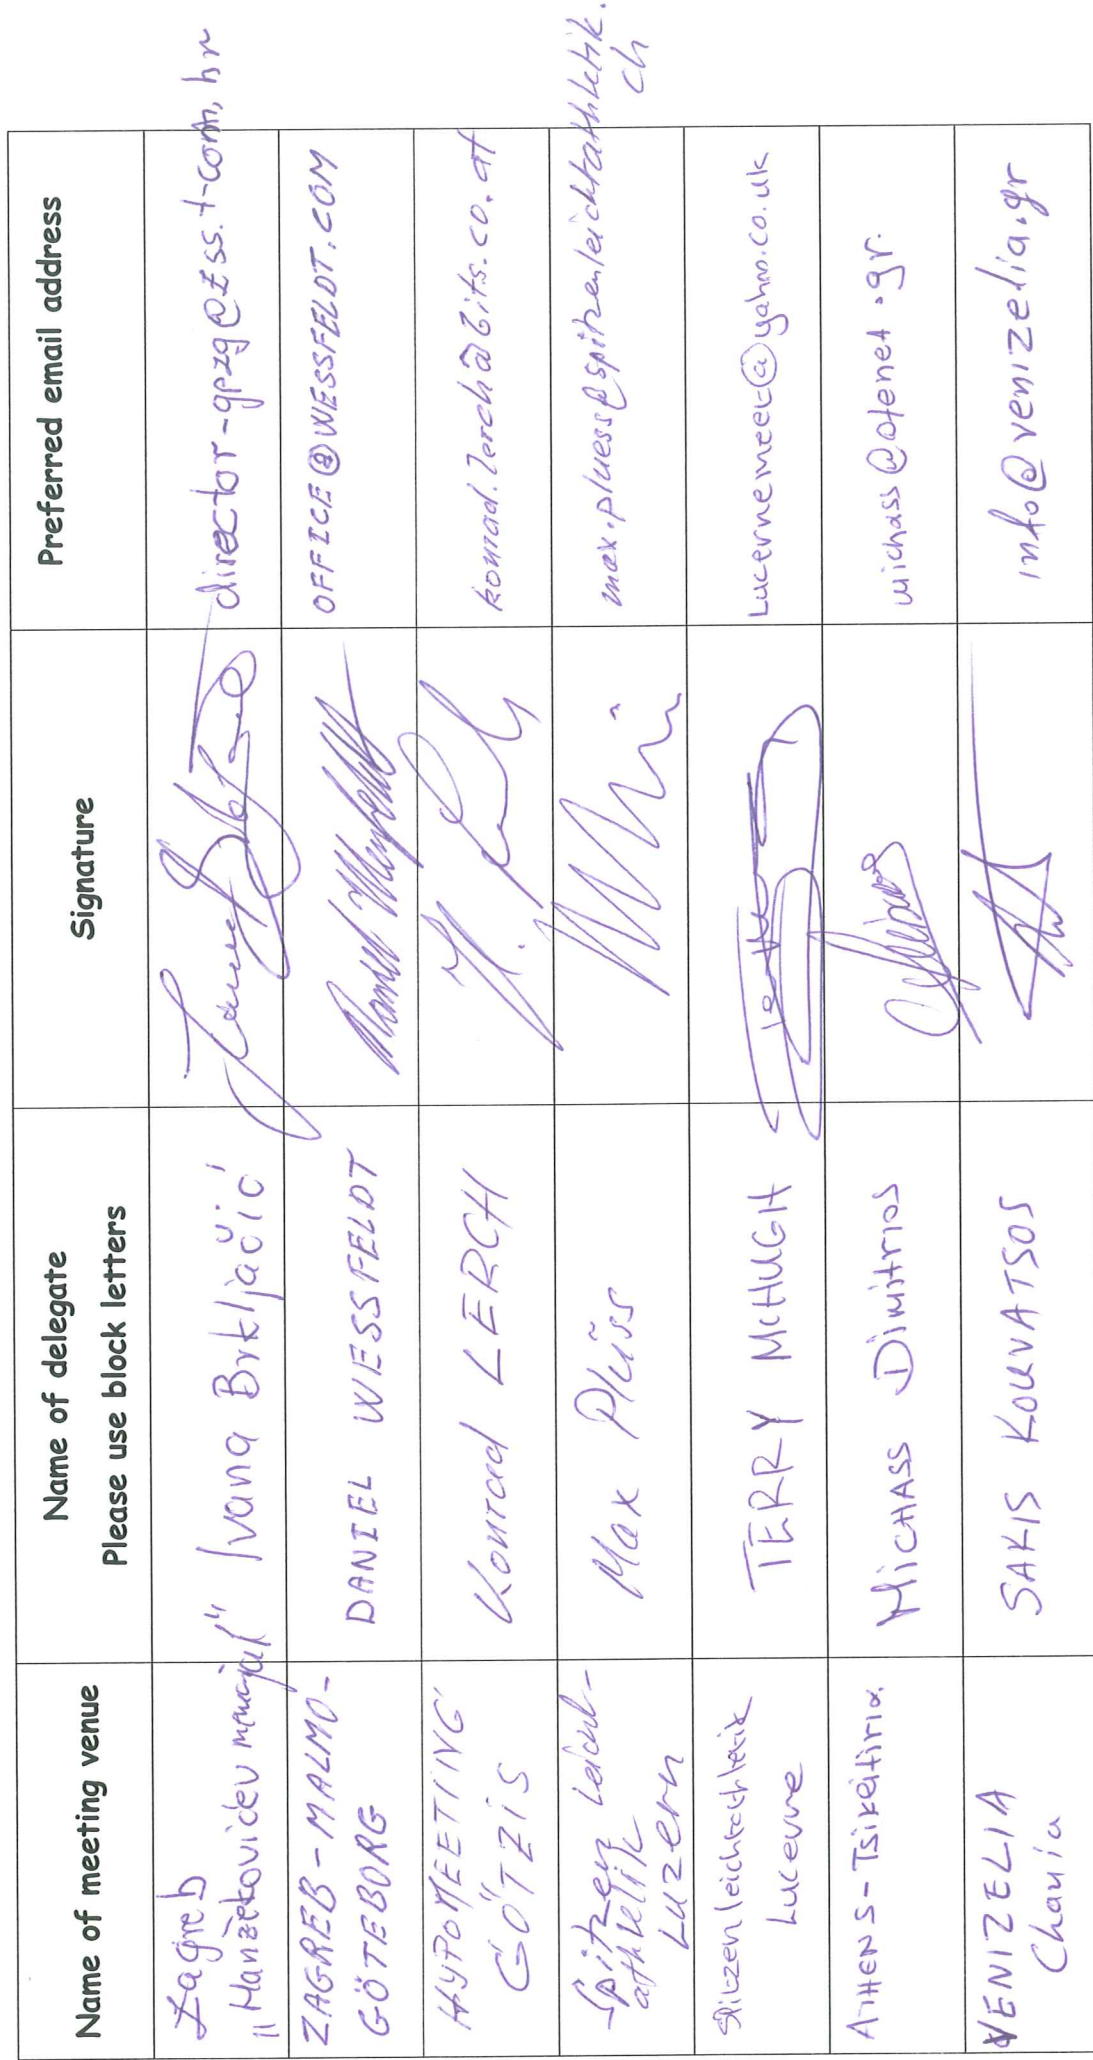 Name of meeting venue
Name of delegate
Please use block letters
Signature
Preferred email address
Zagreb
"Hanžekovićev memorijal"
Ivana Brkljačić
director-gpzg@zss.t-com.hr
ZAGREB - MALMÖ -
GÖTEBORG
DANIEL WESSFELDT
OFFICE@WESSFELDT.COM
HYPOMEETING
GÖTZIS
Konrad LERCH
konrad.lerch@bits.co.at
Spitzen leicht-
athletik
Luzern
Max Plüss
max.pluess@spitzenleichtathletik.
ch
Spitzenleichtathletik
Lucerne
TERRY McHUGH
Lucernemeet@yahoo.co.uk
ATHENS - Tsiklitiria
MICHASS Dimitrios
michass@otenet.gr.
VENIZELIA
Chania
SAKIS KOUVATSOS
info@venizelia.gr